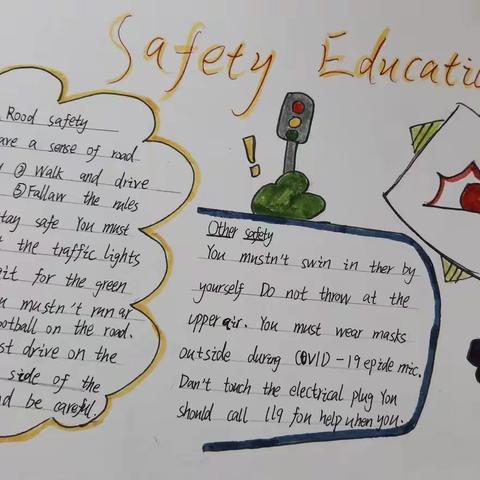 Safety Educatio
Rood safety
ave a sense of road
② Walk and drive
③ Fallaw the rules
tay safe You must
the traffic lights
ait for the green
u mustn't run ar
ootball on the road.
st drive on the
side of the
nd be careful.
!
Other safety
You mustn't swin in ther by
yourself Do not throw at the
upper air. You must wear masks
outside during COVID-19 epidemic.
Dan't touch the electrical plug You
should call 119 fou help when you.